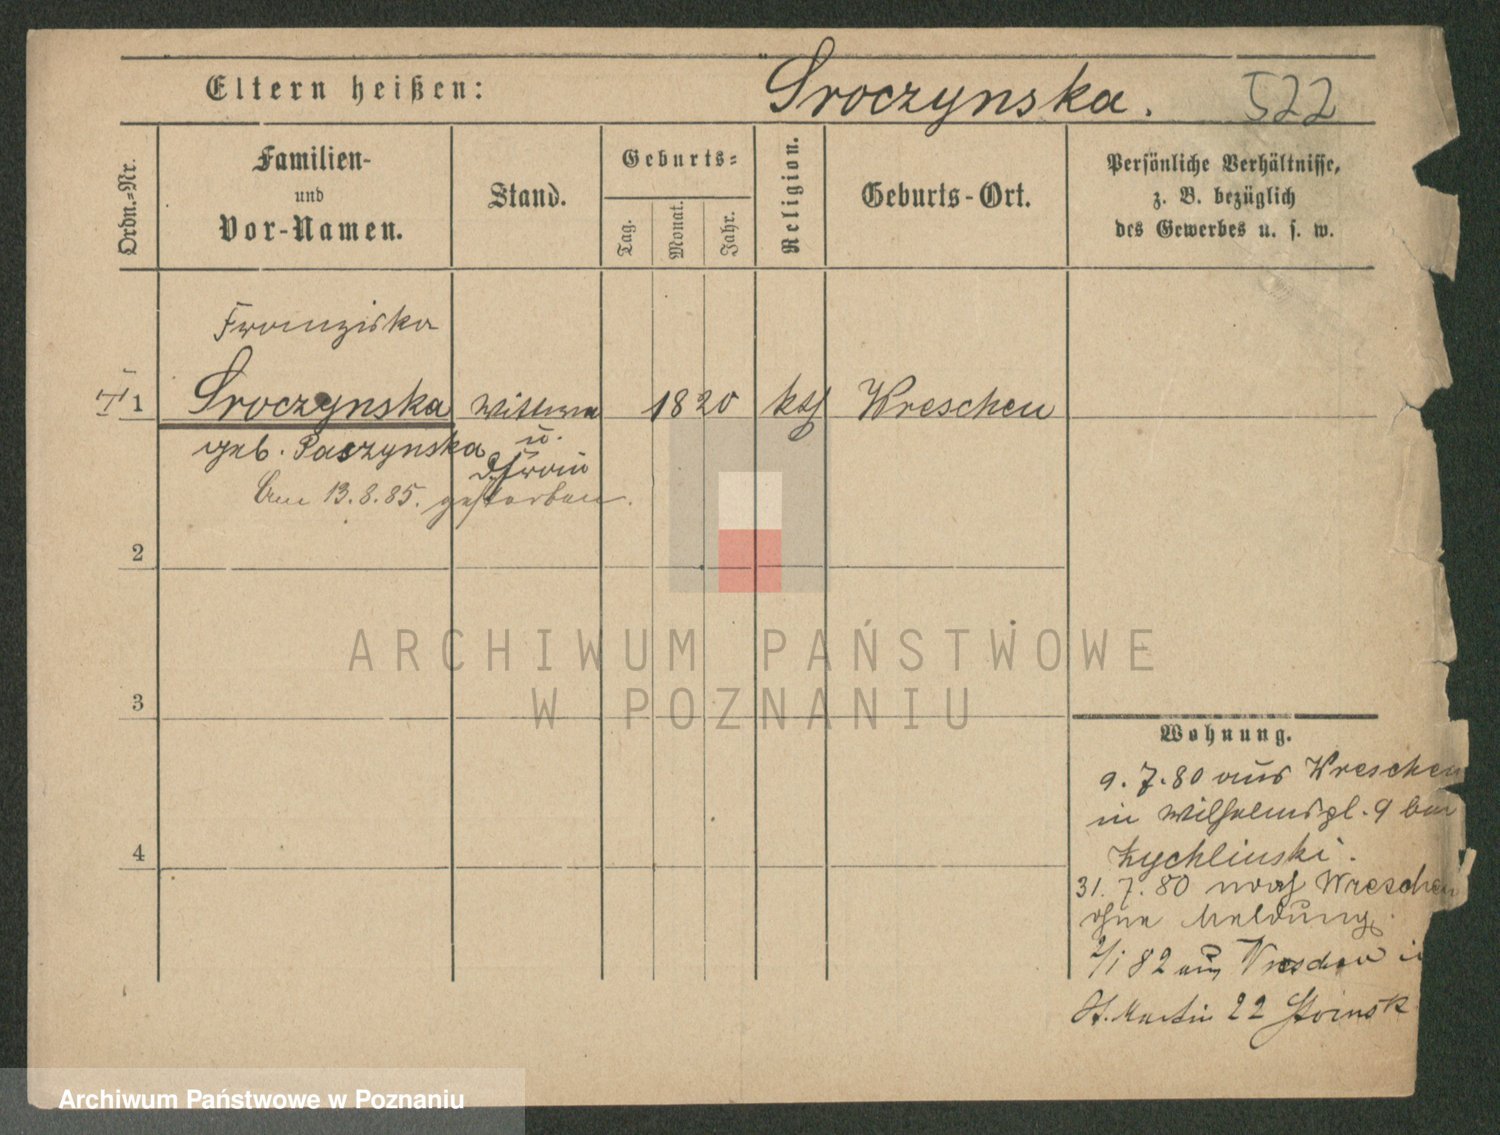 Eltern heißen: Sroczynska. 522
Ordn.-Nr.
Familien-
und
Vor-Namen.
Stand.
Geburts-
Tag.
Monat.
Jahr.
Religion.
Geburts-Ort.
Persönliche Verhältnisse,
z. B. bezüglich
des Gewerbes u. s. w.
Franziska
1 Sroczynska Wittwe 1820 kth Wreschen
geb. Paszynska u.
Am 13.8.85. gestorben.
2
3
4
ARCHIWUM PAŃSTWOWE
W POZNANIU
Wohnung.
9.7.80 aus Wreschen
in Wilhelmspl. 9 bei
Zychlinski.
31.7.80 nach Wreschen
ohne Meldung.
2/1 82 aus Wreschen in
St. Martin 22
Archiwum Państwowe w Poznaniu